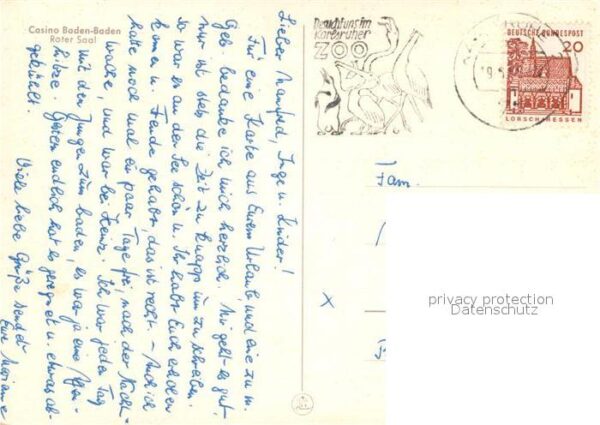 Casino Baden-Baden
Roter Saal
Lieber Manfred, Inge u. Kinder!
Für eine Karte aus Eurem Urlaub und eine z. m.
Geb. bedanke ich mich herzlich. Mir geht es gut,
nur ist stets die Zeit zu knapp um zu schreiben.
So war es an der See schön u. Ihr habt Euch erholen
können u. Freude gehabt, das ist recht. – Auch ich
hatte noch mal ein paar Tage frei, nach der Nacht-
wache, und war bei Ich war jeden Tag
mit den Jungen zum baden, es war ja eine
hitze. Gestern endlich hat es geregnet u. etwas ab-
gekühlt.
Viele liebe Grüße sendet
Eure Marianne
Besucht uns im
Karlsruher
ZOO
DEUTSCHE BUNDESPOST
20
LORSCH/HESSEN
Fam.
x
privacy protection
Datenschutz